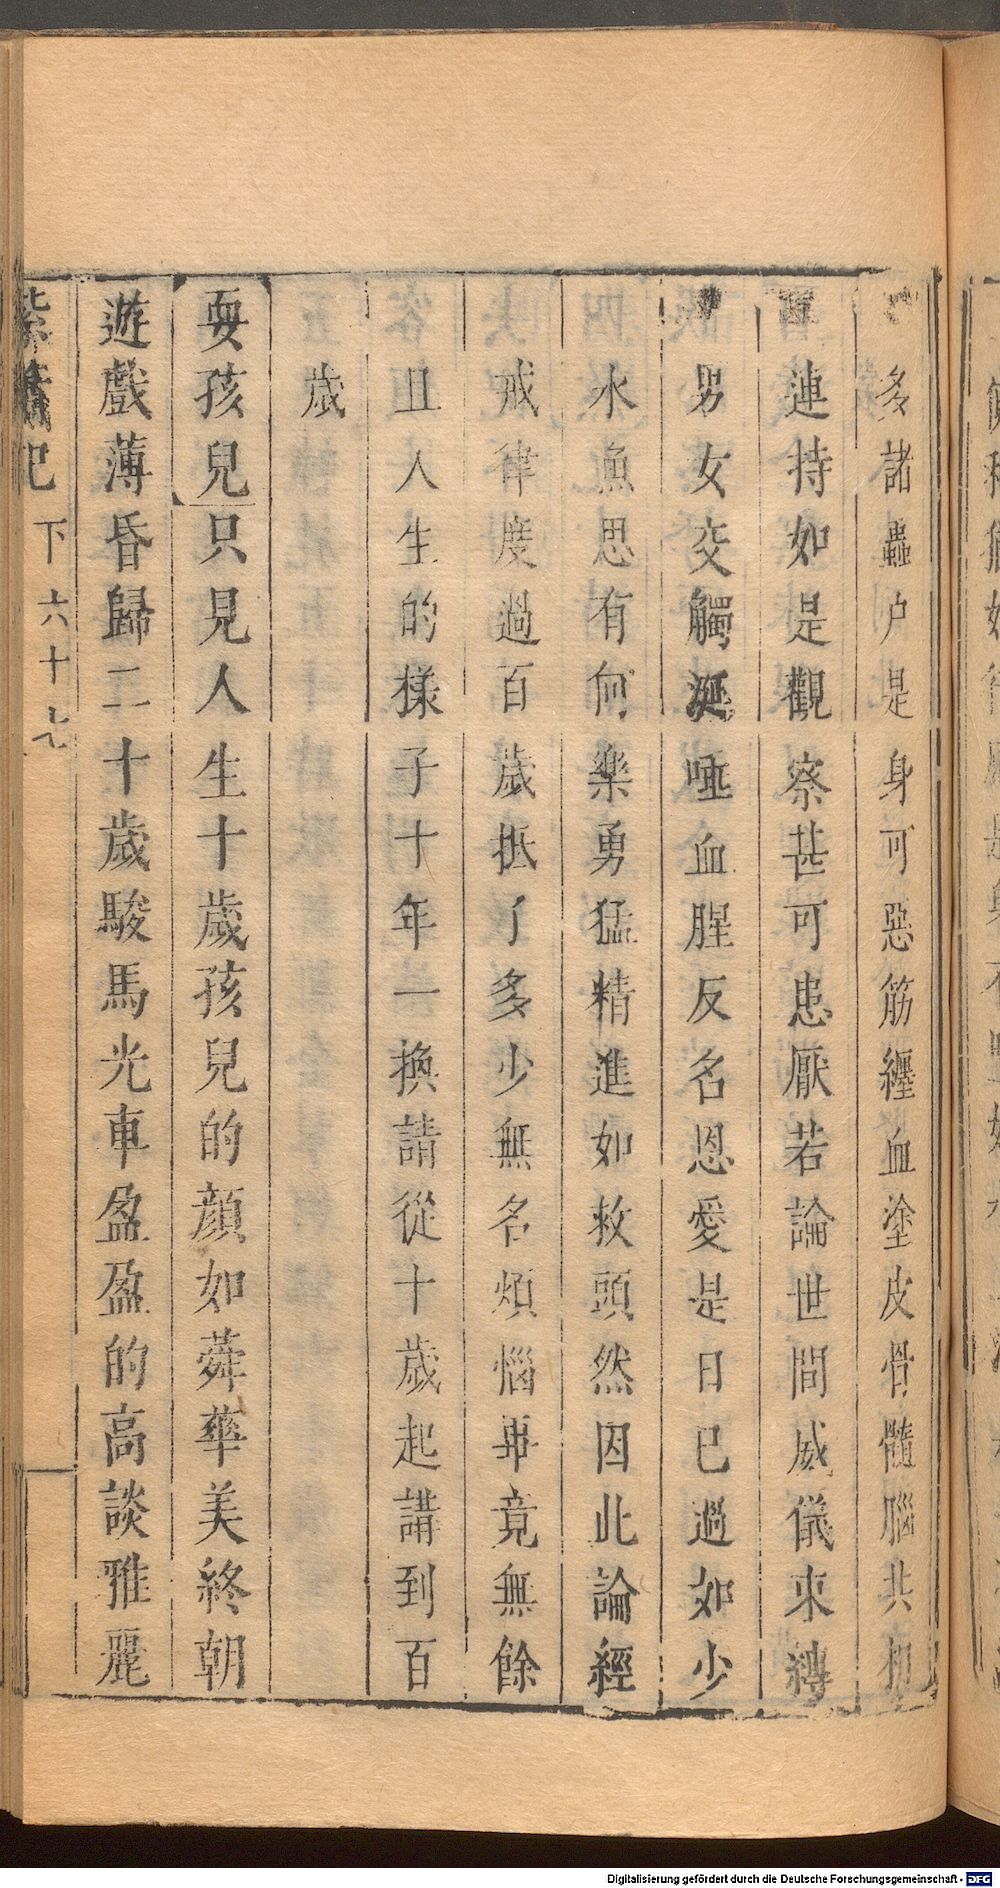 多諸蟲户是身可惡筋纒血塗皮骨髓腦共相
連持如是觀察甚可患厭若論世間威儀來縛
男女交觸涎唾血腥反名恩愛是日已過如少
水魚思有何樂勇猛精進如救頭然因此論經
戒律度過百歲抵了多少無名煩惱畢竟無餘
且人生的樣子十年一換請從十歲起講到百
歲
耍孩兒只見人生十歲孩兒的顏如蕣華美終朝
遊戲薄昏歸二十歲駿馬光車盈盈的高談雅麗
紫簫記
下六十七
Digitalisierung gefördert durch die Deutsche Forschungsgemeinschaft - DFG